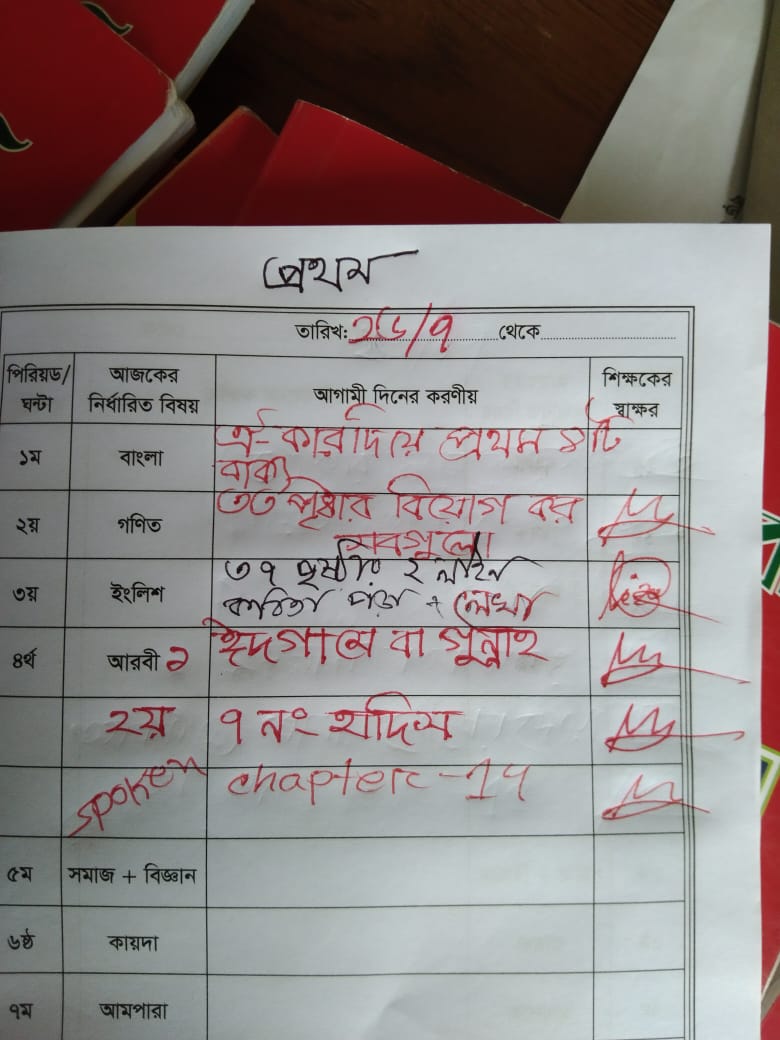 প্রথম
তারিখ: ২৬/৭ থেকে
পিরিয়ড/ঘন্টা আজকের নির্ধারিত বিষয় আগামী দিনের করণীয় শিক্ষকের স্বাক্ষর
১ম বাংলা ঐ-কার দিয়ে প্রথম ১টি
বাক্য
২য় গণিত ৩৩ পৃষ্ঠার বিয়োগ কর
সবগুলো
৩য় ইংলিশ ৩৭ পৃষ্ঠার ২ লাইন
কবিতা পড়া + লেখা
৪র্থ আরবী ১ ইদগামে বা গুন্নাহ
২য় ৭ নং হাদিস
spoken chapter-14
৫ম সমাজ + বিজ্ঞান
৬ষ্ঠ কায়দা
৭ম আমপারা